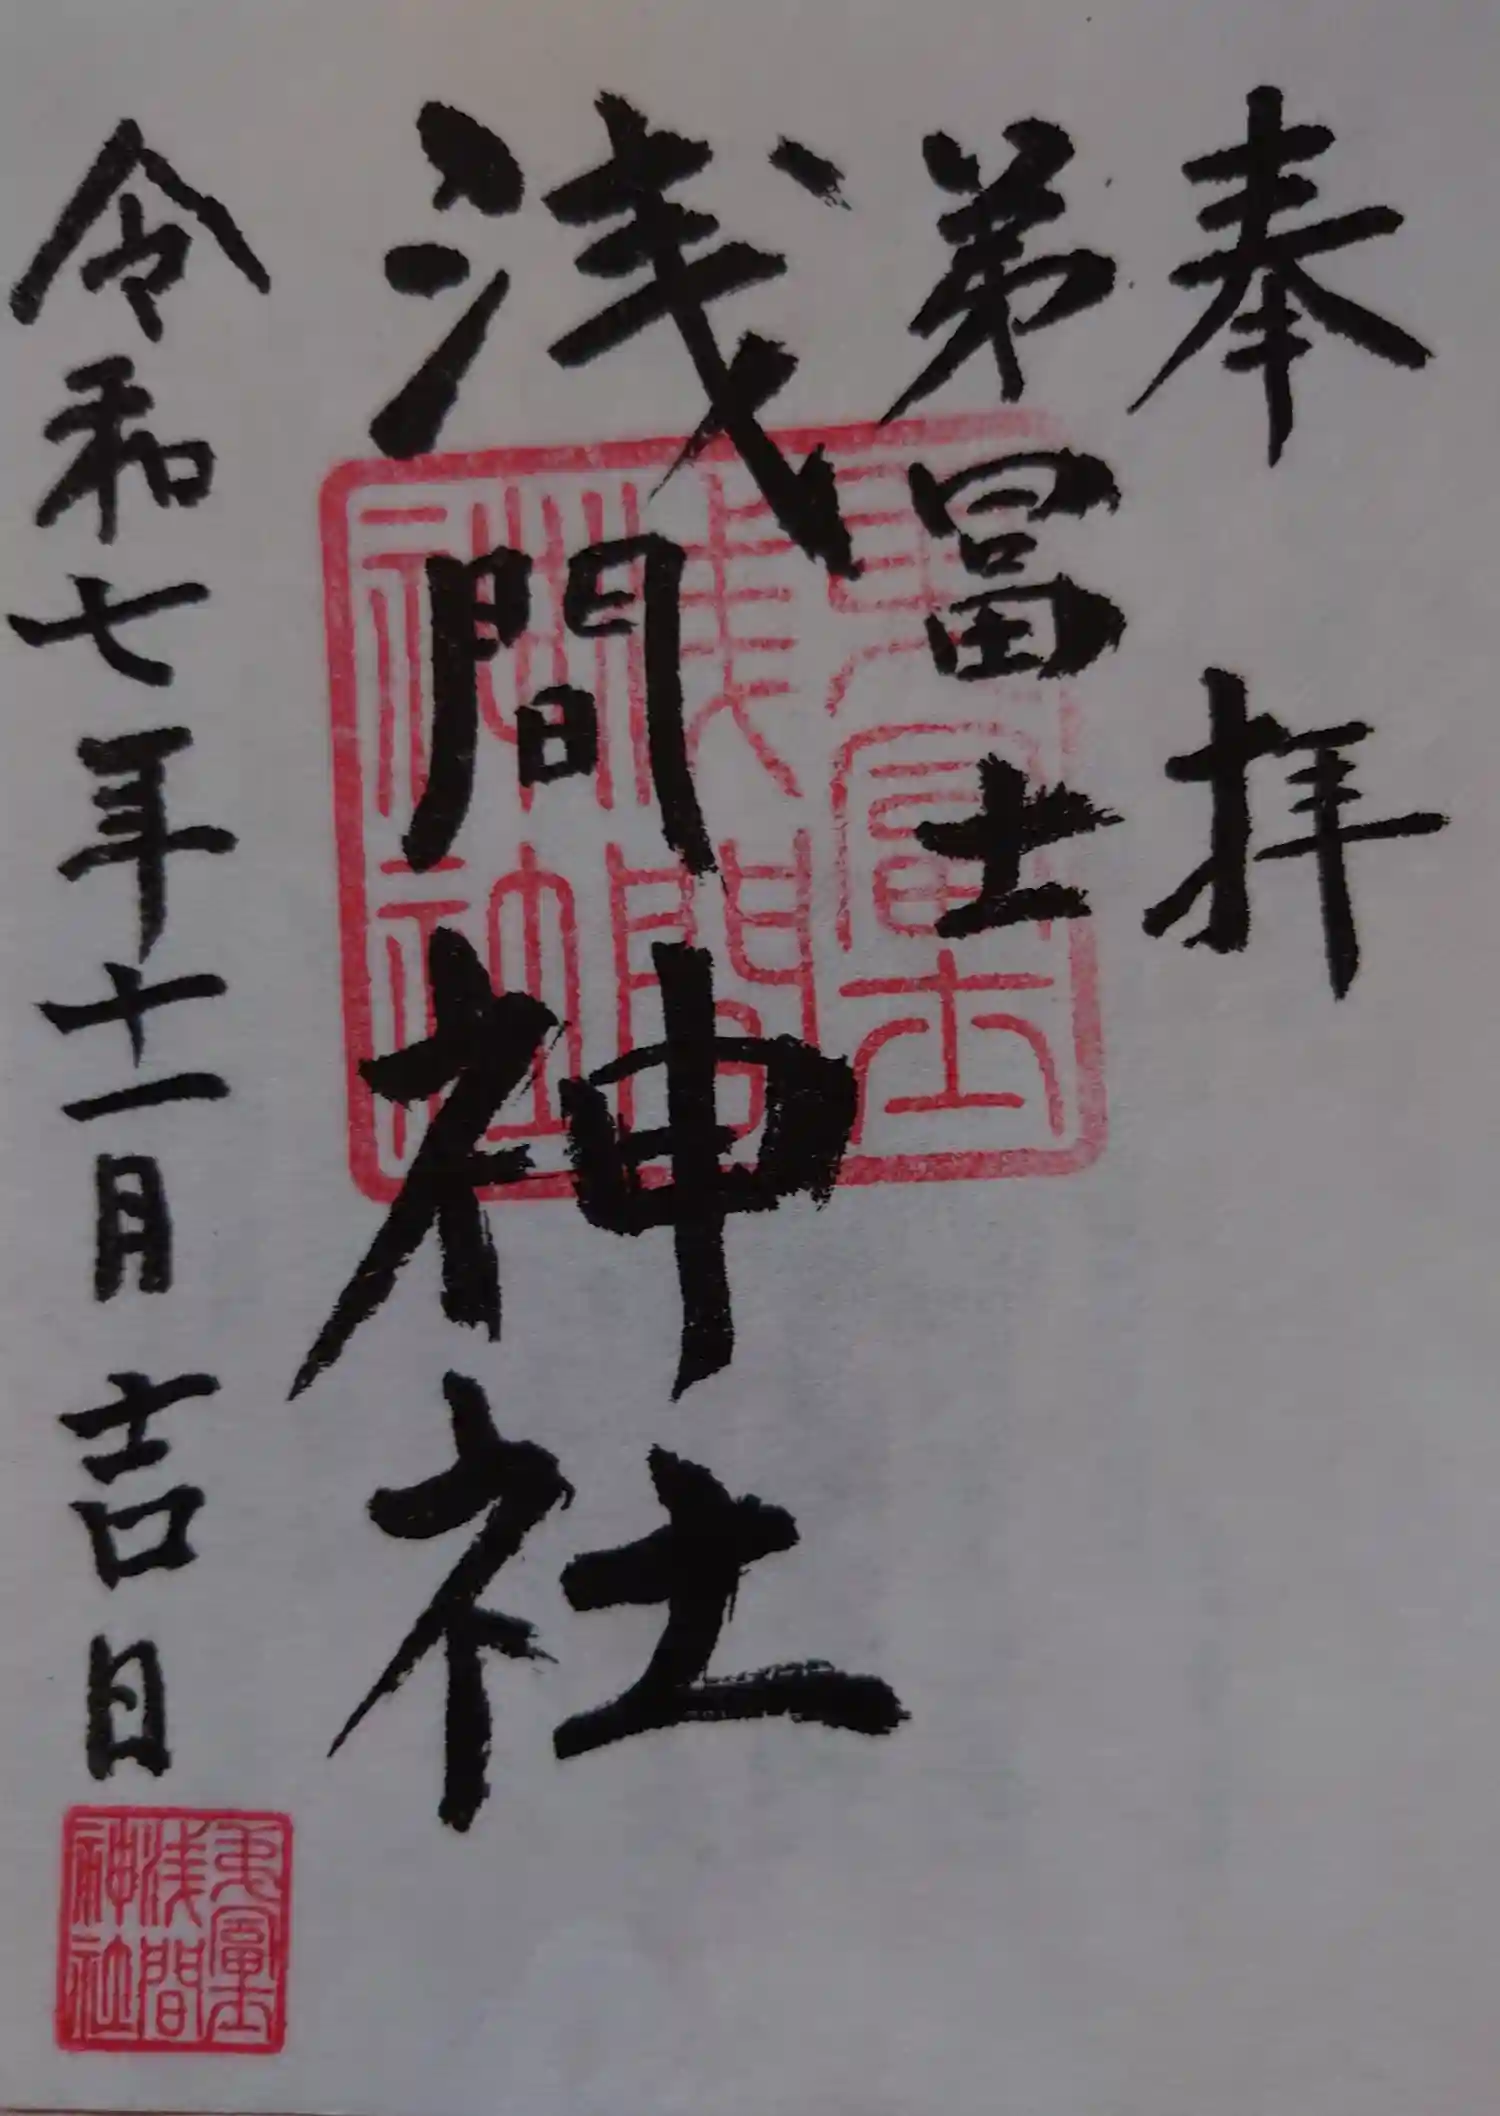 奉拝
弟冨士
浅間神社
令和七年十一月吉日
弟富士
浅間
神社
弟富士
浅間
神社